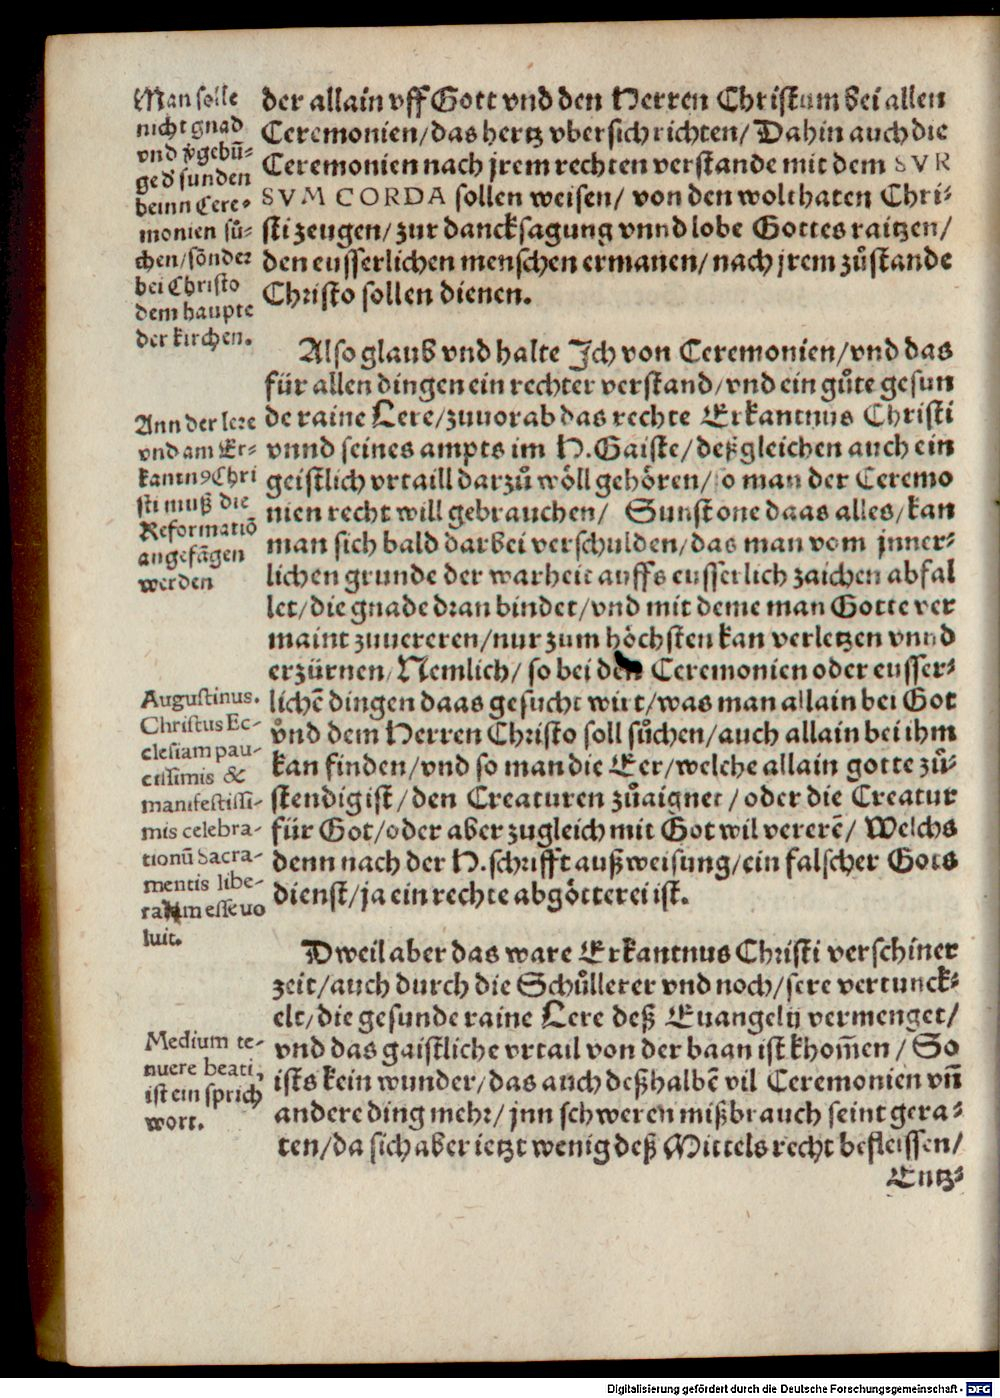 der allain vff Gott vnd den Herren Christum bei allen
Ceremonien/das hertz vber sich richten/Dahin auch die
Ceremonien nach jrem rechten verstande mit dem SVR
SVM CORDA sollen weisen/ von den wolthaten Chri⸗
sti zeugen/zur dancksagung vnnd lobe Gottes raitzen/
den eusserlichen menschen ermanen/nach jrem zůstande
Christo sollen dienen.
Man solle
nicht gnad
vnd v̈gebū⸗
ge d' sunden
beinn Cere⸗
monien sů⸗
chen/sōnder
bei Christo
dem haupte
der kirchen.
Also glaub vnd halte Ich von Ceremonien/vnd das
für allen dingen ein rechter verstand/vnd ein gůte gesun
de raine Lere/zuuorab das rechte Erkantnus Christi
vnnd seines ampts im H.Gaiste/deßgleichen auch ein
geistlich vrtaill darzů wöll gehören/so man der Ceremo
nien recht will gebrauchen/ Sunst one daas alles/kan
man sich bald darbei verschulden/das man vom jnner⸗
lichen grunde der warheit auffs eusserlich zaichen abfal
let/die gnade dran bindet/vnd mit deme man Gotte ver
maint zuuereren/nur zum höchsten kan verletzen vnnd
erzürnen/Nemlich/so bei den Ceremonien oder eusser⸗
lichē dingen daas gesucht wirt/was man allain bei Got
vnd dem Herren Christo soll sůchen/auch allain bei ihm
kan finden/vnd so man die Eer/welche allain gotte zů⸗
stendig ist/den Creaturen zůaignet/oder die Creatur
für Got/oder aber zugleich mit Got wil vererē/ Welchs
denn nach der H.schrifft außweisung/ein falscher Gots
dienst/ja ein rechte abgötterei ist.
Ann der lere
vnd am Er⸗
kantnꝰChri
sti muß die
Reformatiō
angefāgen
werden
Augustinus.
Christus Ec-
clesiam pau-
cissimis &
manifestissi-
mis celebra-
tionū Sacra-
mentis libe-
ratam esse vo
luit.
Dweil aber das ware Erkantnus Christi verschiner
zeit/auch durch die Schůllerer vnd noch/sere vertunck⸗
elt/die gesunde raine Lere deß Euangelij vermenget/
vnd das gaistliche vrtail von der baan ist khom̄en/So
ists kein wunder/das auch deßhalbē vil Ceremonien vn̄
andere ding mehr/jnn schweren mißbrauch seint gera⸗
ten/da sich aber ietzt wenig deß Mittels recht befleissen/
Medium te-
nuere beati,
ist ein sprich
wort.
Entz⸗
Digitalisierung gefördert durch die Deutsche Forschungsgemeinschaft - DFG